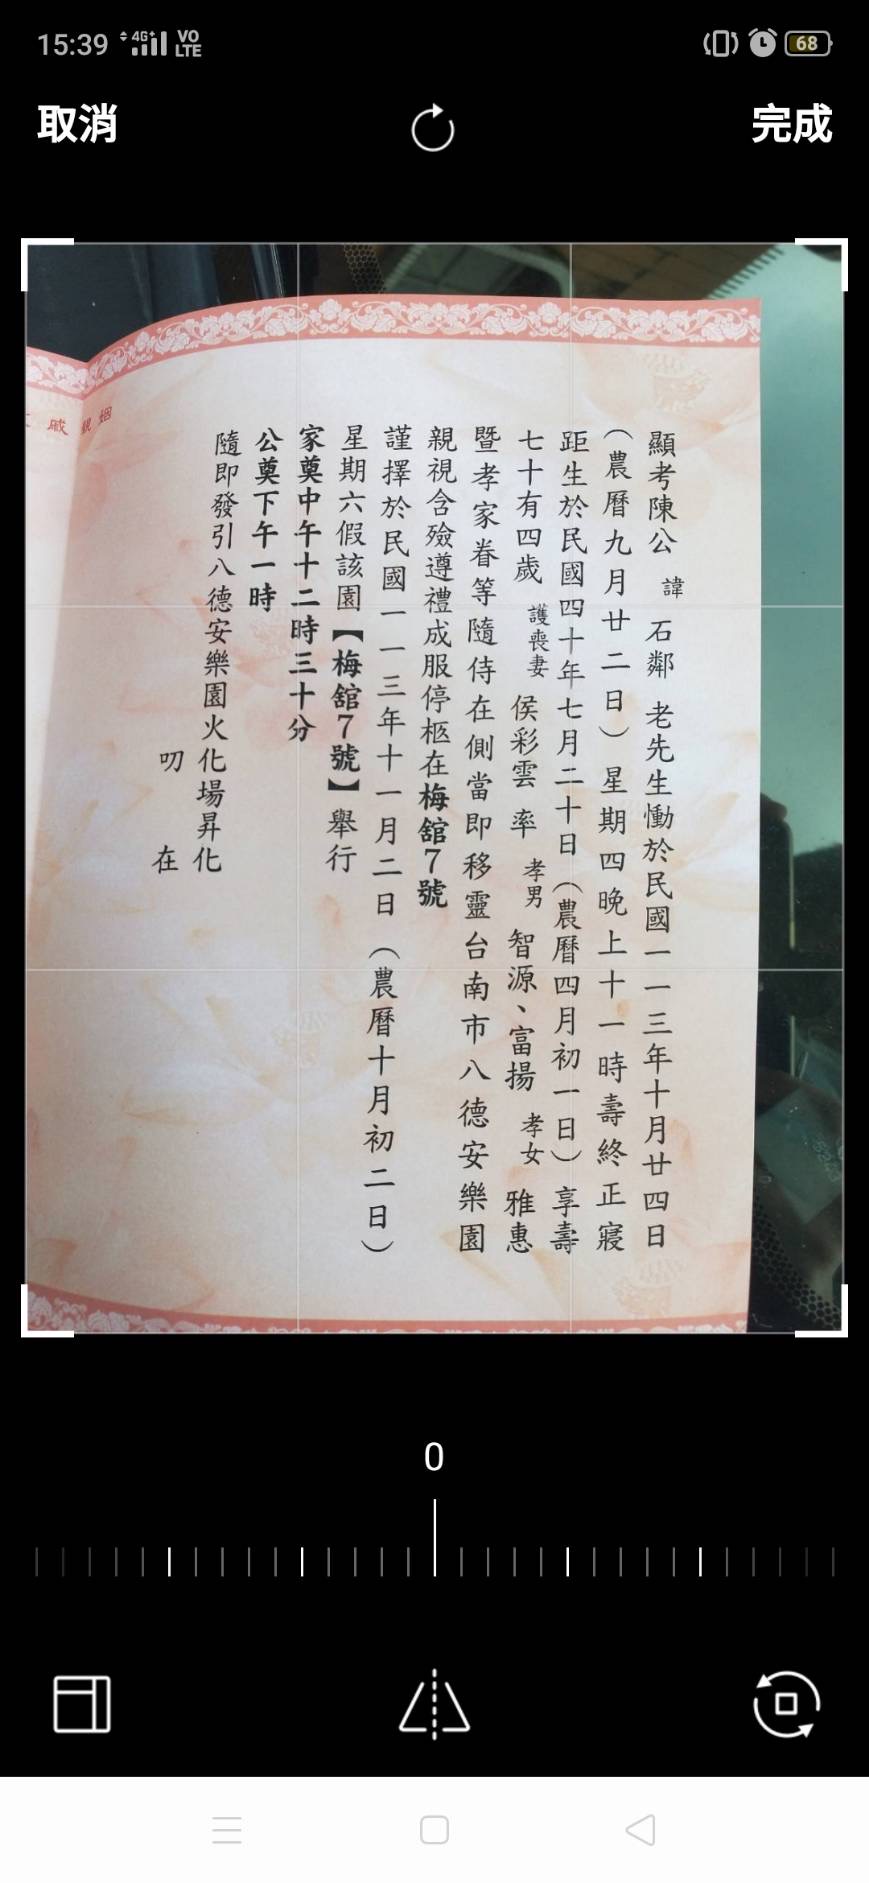 15:39 4G+ VO LTE 68
取消 完成
顯考陳公 諱 石鄰 老先生慟於民國一一三年十月廿四日
（農曆九月廿二日）星期四晚上十一時壽終正寢
距生於民國四十年七月二十日（農曆四月初一日）享壽
七十有四歲 護喪妻 侯彩雲 率 孝男 智源、富揚 孝女 雅惠
暨孝家眷等隨侍在側當即移靈台南市八德安樂園
親視含殮遵禮成服停柩在梅舘7號
謹擇於民國一一三年十一月二日（農曆十月初二日）
星期六假該園【梅舘7號】舉行
家奠中午十二時三十分
公奠下午一時
隨即發引八德安樂園火化場昇化
叨
在
姻
親
戚
0